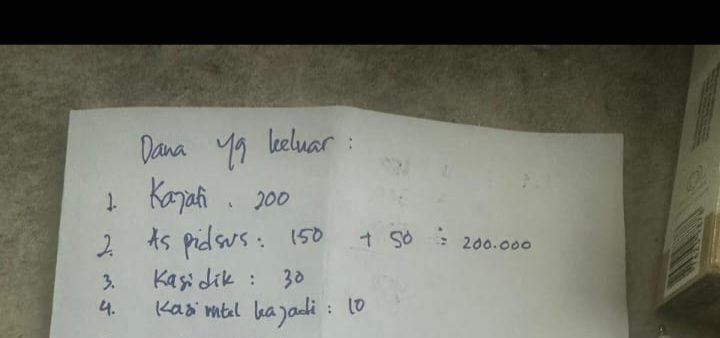 Dana yg keluar :
1. Kajati . 200
2. As pidsus : 150 + 50 : 200.000
3. Kasi dik : 30
4. Kasi intel kajadi : 10